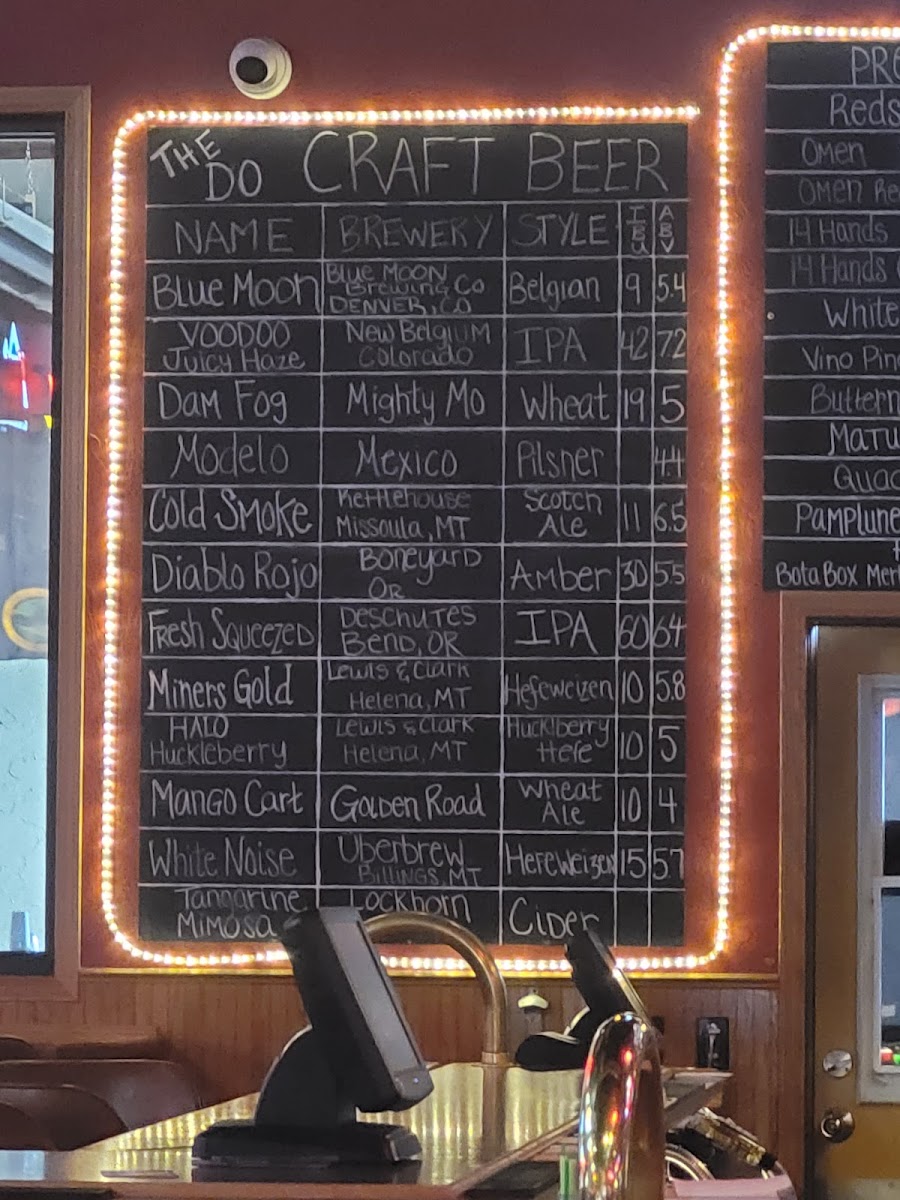 THE DO CRAFT BEER
NAME BREWERY STYLE IBU ABV
Blue Moon Blue Moon Brewing Co Denver, Co Belgian 9 5.4
VOODOO Juicy Haze New Belgium Colorado IPA 42 72
Dam Fog Mighty Mo Wheat 19 5
Modelo Mexico Pilsner 44
Cold Smoke Kettlehouse Missoula, MT Scotch Ale 11 6.5
Diablo Rojo Boneyard OR Amber 30 55
Fresh Squeezed Deschutes Bend, OR IPA 60 64
Miners Gold Lewis & Clark Helena, MT Hefeweizen 10 5.8
HALO Huckleberry Lewis & Clark Helena, MT Hucklberry Hefe 10 5
Mango Cart Golden Road Wheat Ale 10 4
White Noise Überbrew Billings, MT Hereweizen 15 57
Tangarine Mimosa Lockhorn Cider
Reds
Omen
Omen Re
14 Hands
14 Hands
White
Vino Pin
Buttern
Matu
Quac
Pamplune
Bota Box Merl